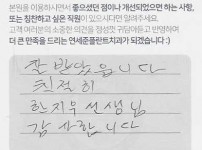 본원을 이용하시면서 좋으셨던 점이나 개선되었으면 하는 사항,
또는 칭찬하고 싶은 직원이 있으시다면 알려주세요.
고객 여러분의 소중한 의견을 정성껏 귀담아듣고 반영하여
더 큰 만족을 드리는 연세준플란트치과가 되겠습니다 :)
잘 받았습니다
친절히
한지우 선생님
감사합니다